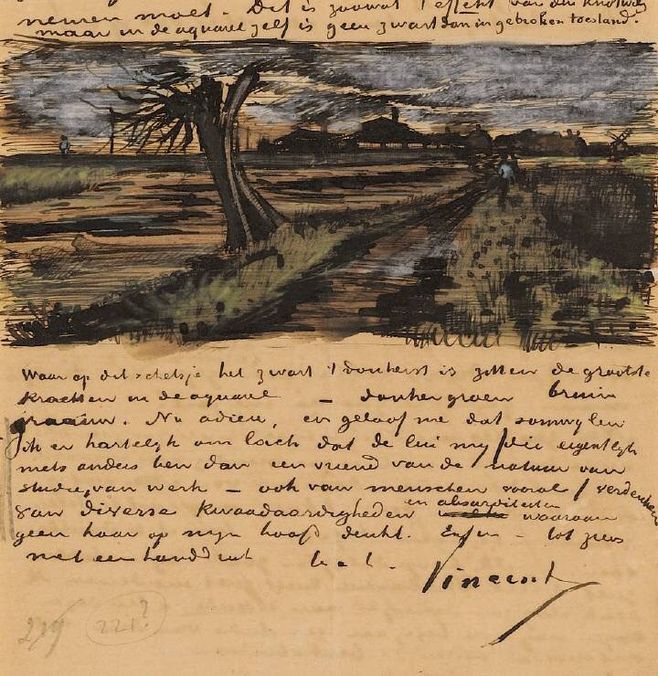 nemen moet. Dit is zoowat 't effekt van den knotwilg
maar in de aquarel zelf is geen zwart dan in gebroken toestand.
Waar op dit schetsje het zwart 't donkerst is zitten de grootste
krachten in de aquarel – donkergroen bruin
graauw. Nu adieu, en geloof me dat somwylen
ik er hartelyk om lach dat de lui my /die eigentlyk
niets anders ben dan een vriend van de natuur van
studie, van werk – ook van menschen vooral/ verdenken
van diverse kwaadaardigheden en absurditeiten waaraan
geen haar op myn hoofd denkt. Enfin – tot ziens
met een handdruk t. à t.
Vincent
219 221?